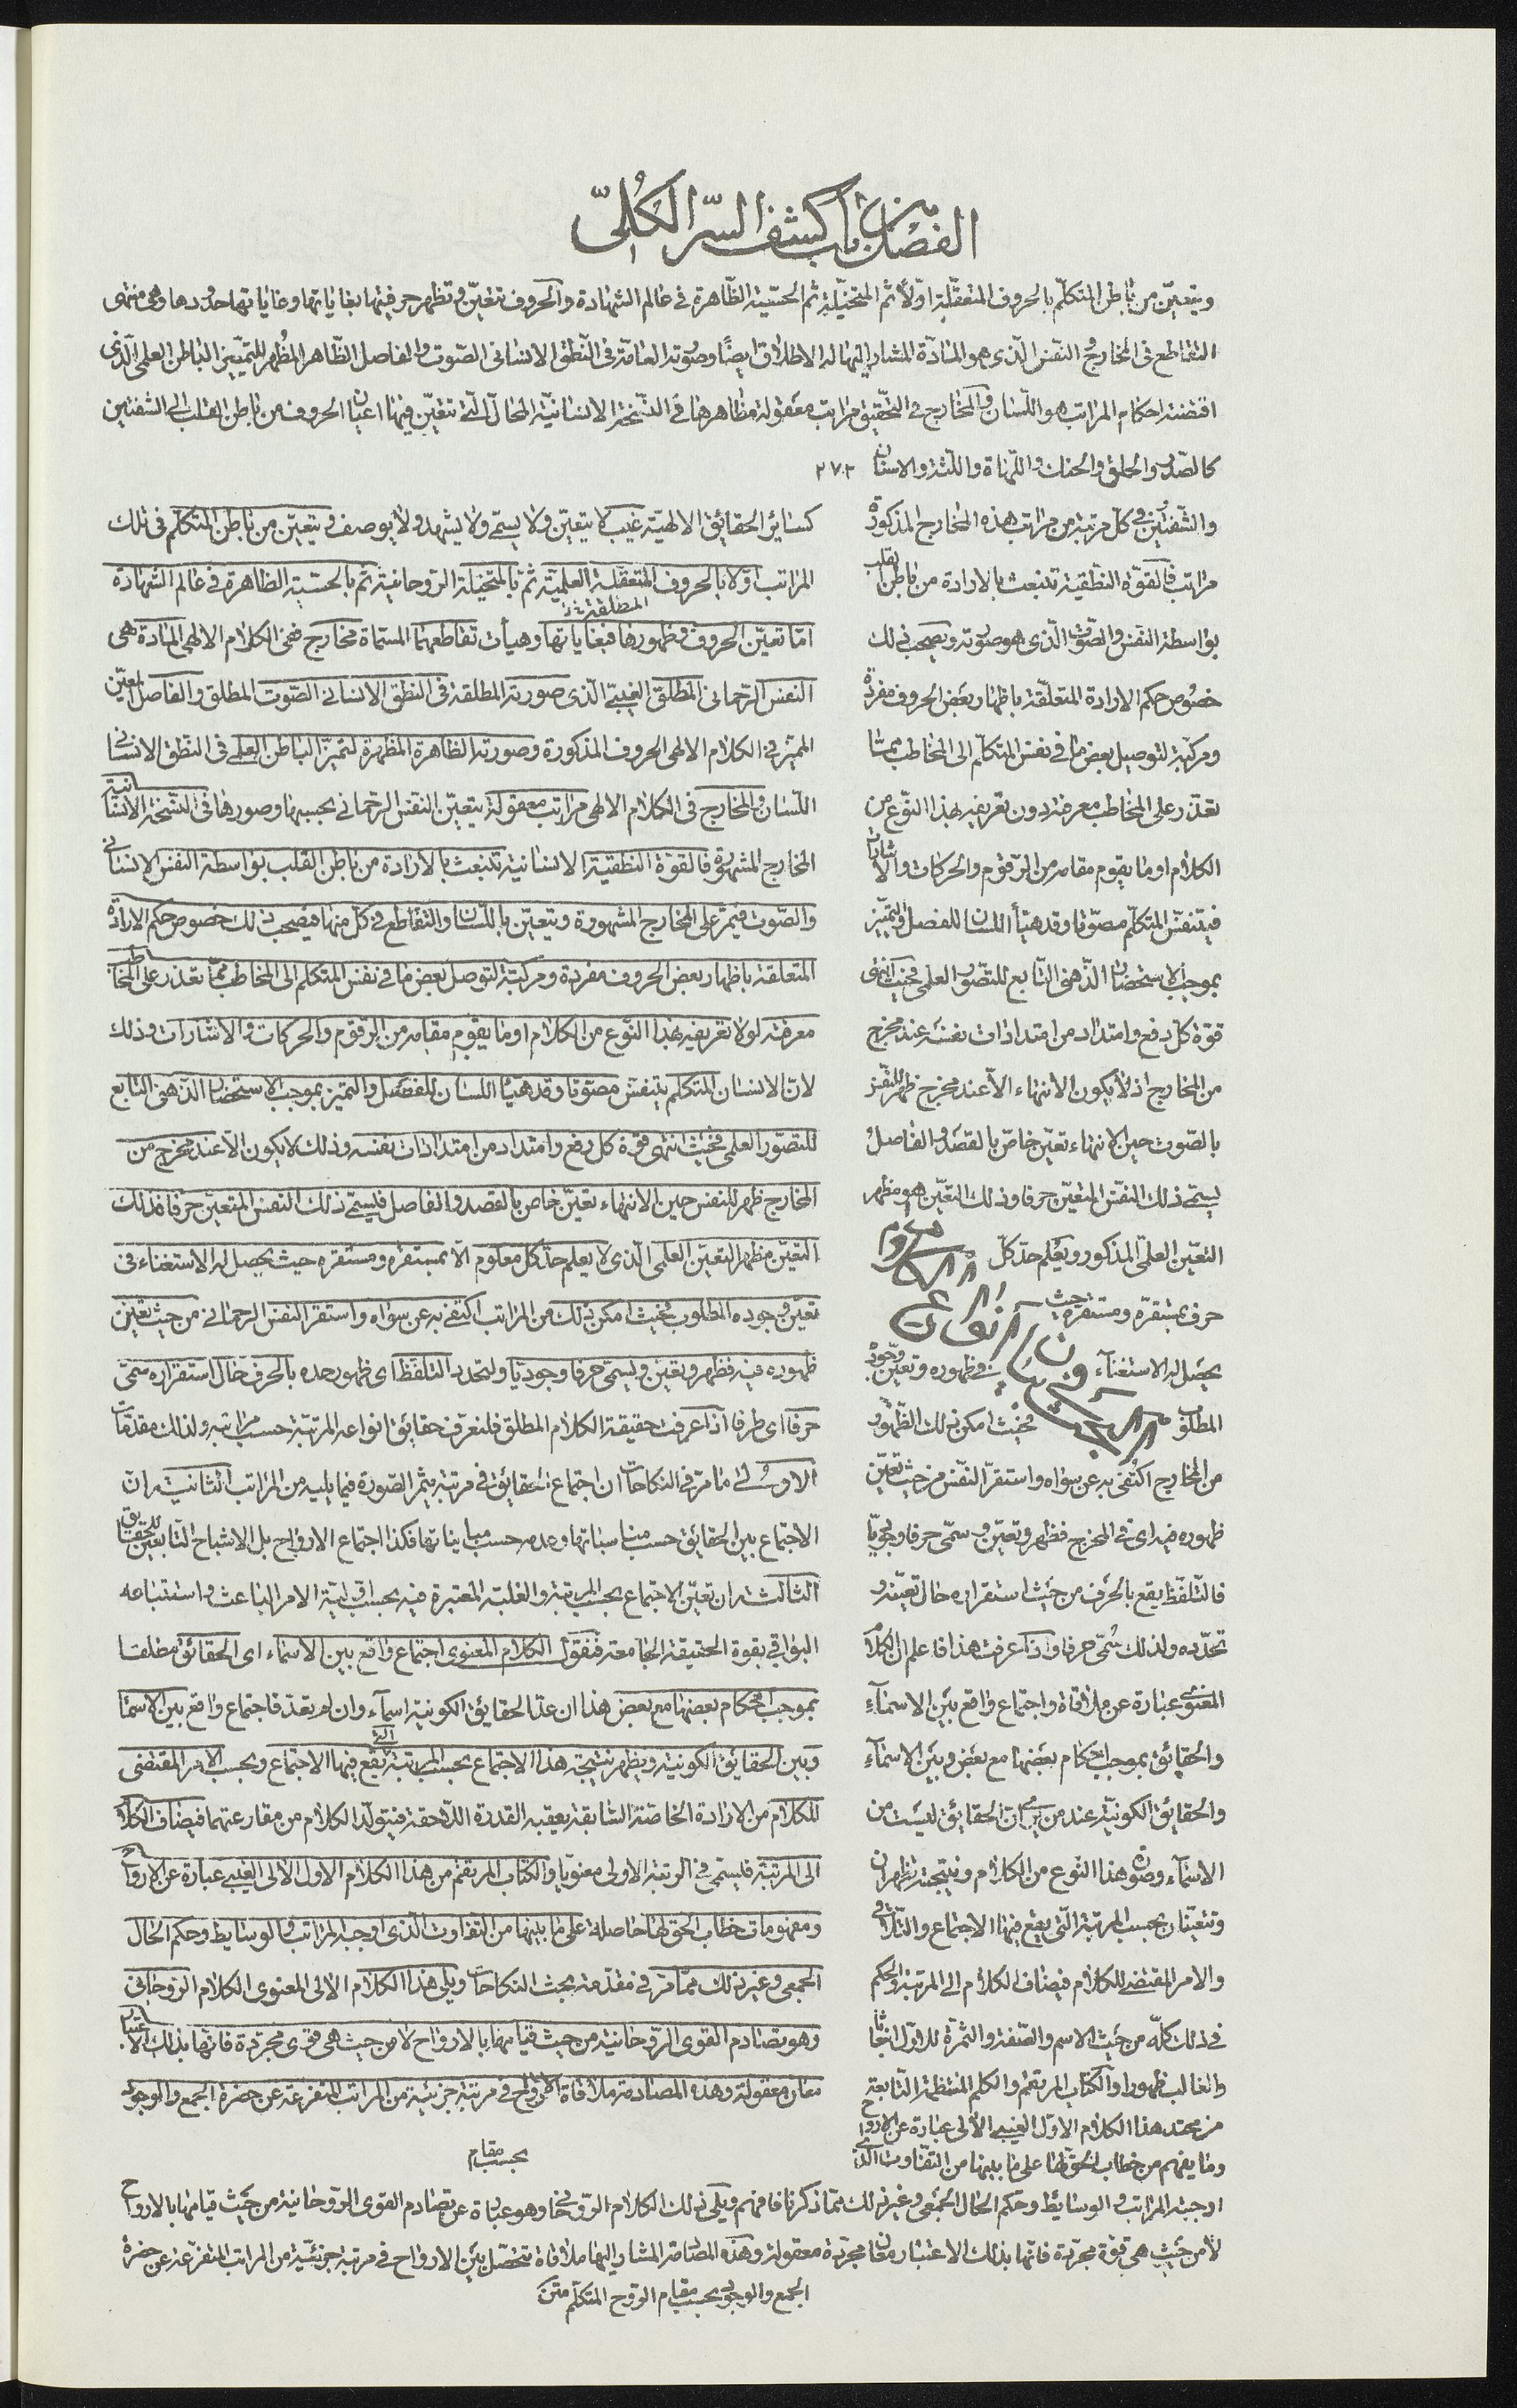 الفصل من باب كشف السرّ الكلّى
ويتعيّن من باطن المتكلّم بالحروف المتعقّلة اوّلًا ثم المتخيّلة ثم الحسّية الظّاهرة فى عالم الشهادة والحروف تتعيّن وتظهر حرفيتها بغاياتها وغاياتها حدودها وهى منتهى
التقاطع فى المخارج والنفس الّذى هو المادّة المشار اليها له الاطلاق ايضًا وصورته العامّة فى النّطق الانسانى الصّوت والفاصل الظّاهر المُظهر للتمييز الباطن العلمى الّذى
اقتضته احكام المراتب هو اللّسان والمخارج فى التحقيق مراتب معقولة مظاهرها فى النّسخة الانسانيّة المحالّ الّتى تتعيّن فيها اعيان الحروف من باطن القلب الى الشفتين
كالصّدر والحلق والحنك واللّهاة واللّثة والاسنان ٢٧٢
والشّفتين فى كلّ مرتبة من مراتب هذه المخارج المذكورة
مراتب فالقوّة النّطقية تنبعث بالارادة من باطن القلب
بواسطة النفس والصّوت الّذى هو صورته ويصحب ذلك
خصُوص حكم الارادة المتعلّقة باظهار بعض الحروف مفردة
ومركّبة لتوصيل بعض ما فى نفس المتكلّم الى المخاطب مما
تعذّر على المخاطب معرفته دون تعريفه بهذا النّوع من
الكلام او ما يقوم مقامه من الرّقوم والحركات والاشارات
فيتنفّس المتكلّم مصوّتا وقد هيّأ اللسان للفصل والتميّيز
بموجب الاستحضار الذّهنى التّابع للتصّور العلمى فحيث انتهى
قوّة كلّ دفع وامتداد من امتدادات نفسه عند مخرج
من المخارج اذ لا يكون الانتهاء الّا عند مخرج ظهر للنفس
بالصّوت حين الانتهاء تعيّن خاصّ بالقصد والفاصل و
يسمّى ذلك النفس المتعيّن حرفا وذلك التعيّن هو مظهر
التعيّن العلمّى المذكور ويعُلم حدّ كلّ
حرف بمستقرّه ومستقرّه حيث
يحصل له الاستغناء فى ظهوره وتعيّن وجوده
المطلوب فحيث امكن ذلك الظّهور
من المخارج اكتُفى به عن سواه واستقرّ النّفس من حيث تعيّن
ظهوره فيه اى فى المخرج فظهر وتعيّن وسمّى حرفا وجوديّا
فالتّلفّظ يقع بالحَرف من حيث استقراره حال تعيّنه و
تحدّده ولذلك سُمّى حرفا واذا عرفت هذا فاعلم ان الكلام
المعنوى عبارة عن ملاقاة واجتماع واقع بَين الاسمآءِ
والحقائق بموجب احكام بَعضها مع بعض وبَين الاسمآء
والحقائق الكونيّة عند من يرى انّ الحقائق ليسَت من
الاسمآء وصورة هذا النّوع من الكلام ونتيجته تظهران
وتتعيّنان بحسب المرتبة الّتى يقع فيها الاجتماع والتّلاقى
والامر المقتضى للكلام فيضاف الكلام الى المرتبة والحكم
فى ذلك كلّه من حَيث الاسم والصّفة والثمرة للاوّل انبعاثا
والغالب ظهورا والكتاب المرتقم والكلم المنتظمة التابعة
من محتد هذا الكلام الاوّل الغيبى الالهى عبارة عن الارواح
وما يفهم من خطاب الحق لها على ما بينها من التفّاوت الّذى
كسائر الحقائق الالهيّة غيب لا يتعيّن ولا يسمّى ولا يشهد ولا يوصف ويتعيّن من باطن المتكلّم فى تلك
المراتب اوّلا بالحروف المتعقّلة العلميّة ثمّ بالمتخيلة الرّوحانية ثم بالحسّية الظاهرة فى عالم الشهادة
امّا تعيّن الحروف وظهورها فبغاياتها وهيأت تقاطعها المسمّاة مخارج ففى الكلام الالهى المادة هى
المطلقة
النفس الرّحمانى المطلق الغيبىّ الّذى صورته المطلقة فى النطق الانسانى الصّوت المطلق والفاصل المعيّن
المميّز فى الكلام الالهى الحروف المذكورة وصورته الظاهرة المظهرة لتميّز الباطن العلمى فى النطق الانسانى
اللّسان والمخارج فى الكلام الالهى مراتب معقولة بتعيّن النفس الرّحمانى بحسبها وصورها فى النّسخة الانسانية
المخارج المشهورة فالقوّة النطقية الانسانية تنبعث بالارادة من باطن القلب بواسطة النفس الانسانى
والصّوت فيمرّ على المخارج المشهورة ويتعيّن باللّسان والتقاطع فى كلّ منها فيصحب ذلك خصوص حكم الارادة
المتعلقة باظهار بعض الحروف مفردة ومركبّة لتوصل بعض ما فى نفس المتكلّم الى المخاطب ممّا تعذر على المخاطب
معرفته لولا تعريفه بهذا النّوع من الكلام او ما يقوم مقامه من الرقوم والحركات والاشارات وذلك
لانّ الانسان المتكلم يتنفّس مصوّتا وقد هيّأ اللسان للفصل والتميز بموجب الاستحضار الذّهنى التابع
للتصّور العلمى فحيث انتهى قوة كل دفع وامتداد من امتدادات نفسه وذلك لا يكون الّا عند مخرج من
المخارج ظهر للنفس حين الانتهاء تعيّن خاص بالقصد والفاصل فليسمّ ذلك النفس المتعيّن حرفا فذلك
التعيّن مظهر التعيّن العلمى الّذى لا يعلم حدّ كل معلوم الّا بمستقرّه ومستقره حيث يحصل له الاستغناء فى
تعيّن وجوده المطلوب فحيث امكن ذلك من المراتب اكتفى به عن سواه واستقر النفس الرحمانى من حيث تعيّن
ظهوره فيه فظهر وتعيّن ويسمّى حرفا وجوديّا ولتحدد التلفّظ اى ظهور حده بالحرف حال استقراره سمّى
حرفا اى طرفا اذا عرفت حقيقة الكلام المطلق فلنعرف حقائق انواعه المرتبّة حسب مراتبه ولذلك مقدّمات
الاولى ما مرّ فى النكاحات ان اجتماع الحقائق فى مرتبة يثمر الصّورة فيما يليه من المراتب الثانية ان
الاجتماع بين الحقائق حسب مناسباتها وعدمه حسب مبايناتها فكذا اجتماع الارواح بل الاشباح التابعين للحقائق
الثالثة ان تعيّن الاجتماع بحسب المرتبة والغلبة المعتبرة فيه بحسب اوّلية الامر الباعث واستتباعه
البواقى بقوة الحقيقة الجامعة فنقول الكلام المعنوى اجتماع واقع بين الاسماء اى الحقائق مطلقا
بموجب احكام بعضها مع بعض هذا ان عدّ الحقائق الكونية اسمآء وان لم يعدّ فاجتماع واقع بين الاسما
وبين الحقايق الكونية ويظهر نتيجة هذا الاجتماع بحسب المرتبة الّتى يقع فيها الاجتماع وبحسب الامر المقتضى
للكلام من الارادة الخاصّة السّابقة يعقبه القدرة اللّاحقة فيتولّد الكلام من مقارعتهما فيضاف الكلام
الى المرتبة فليسمّى فى الرتبة الاولى معنويّا والكتاب المرتقم من هذا الكلام الاول الالهى الغيبى عبارة عن الارواح
ومفهومات خطاب الحق لها حاصلة على ما بينها من التفاوت الّذى اوجبه المراتب والوسايط وحكم الحال
الجمعى وغير ذلك ممّا مرّ فى مقدمة بحث النكاحات ويلى هذا الكلام الالهى المعنوى الكلام الروحانى
وهو تصادم القوى الرّوحانية من حيث قيامها بالارواح لا من حيث هى قوى مجرّدة فانّها بذلك الاعتبار
معان معقولة وهذه المصادمة ملاقاة الارواح فى مرتبة جزئية من المراتب المتفرعة عن حضرة الجمع والوجود
بحسب مقام
اوجبته المراتب والوسايط وحكم الحال الجمعى وغير ذلك ممّا ذكرنا فافهم ويلى ذلك الكلام الرّوحانى وهو عبارة عن تصادم القوى الرّوحانية من حيث قيامها بالارواح
لا من حيث هى قوّة مجرّدة فانّها بذلك الاعتبار معان مجرّدة معقولة وهذه المصادمة المشار اليها ملاقاة تحصل بَين الارواح فى مرتبة جزئيّة من المراتب المتفرّعة عن حضرة
الجمع والوجود بحسب مقام الرّوح المتكلّم متن